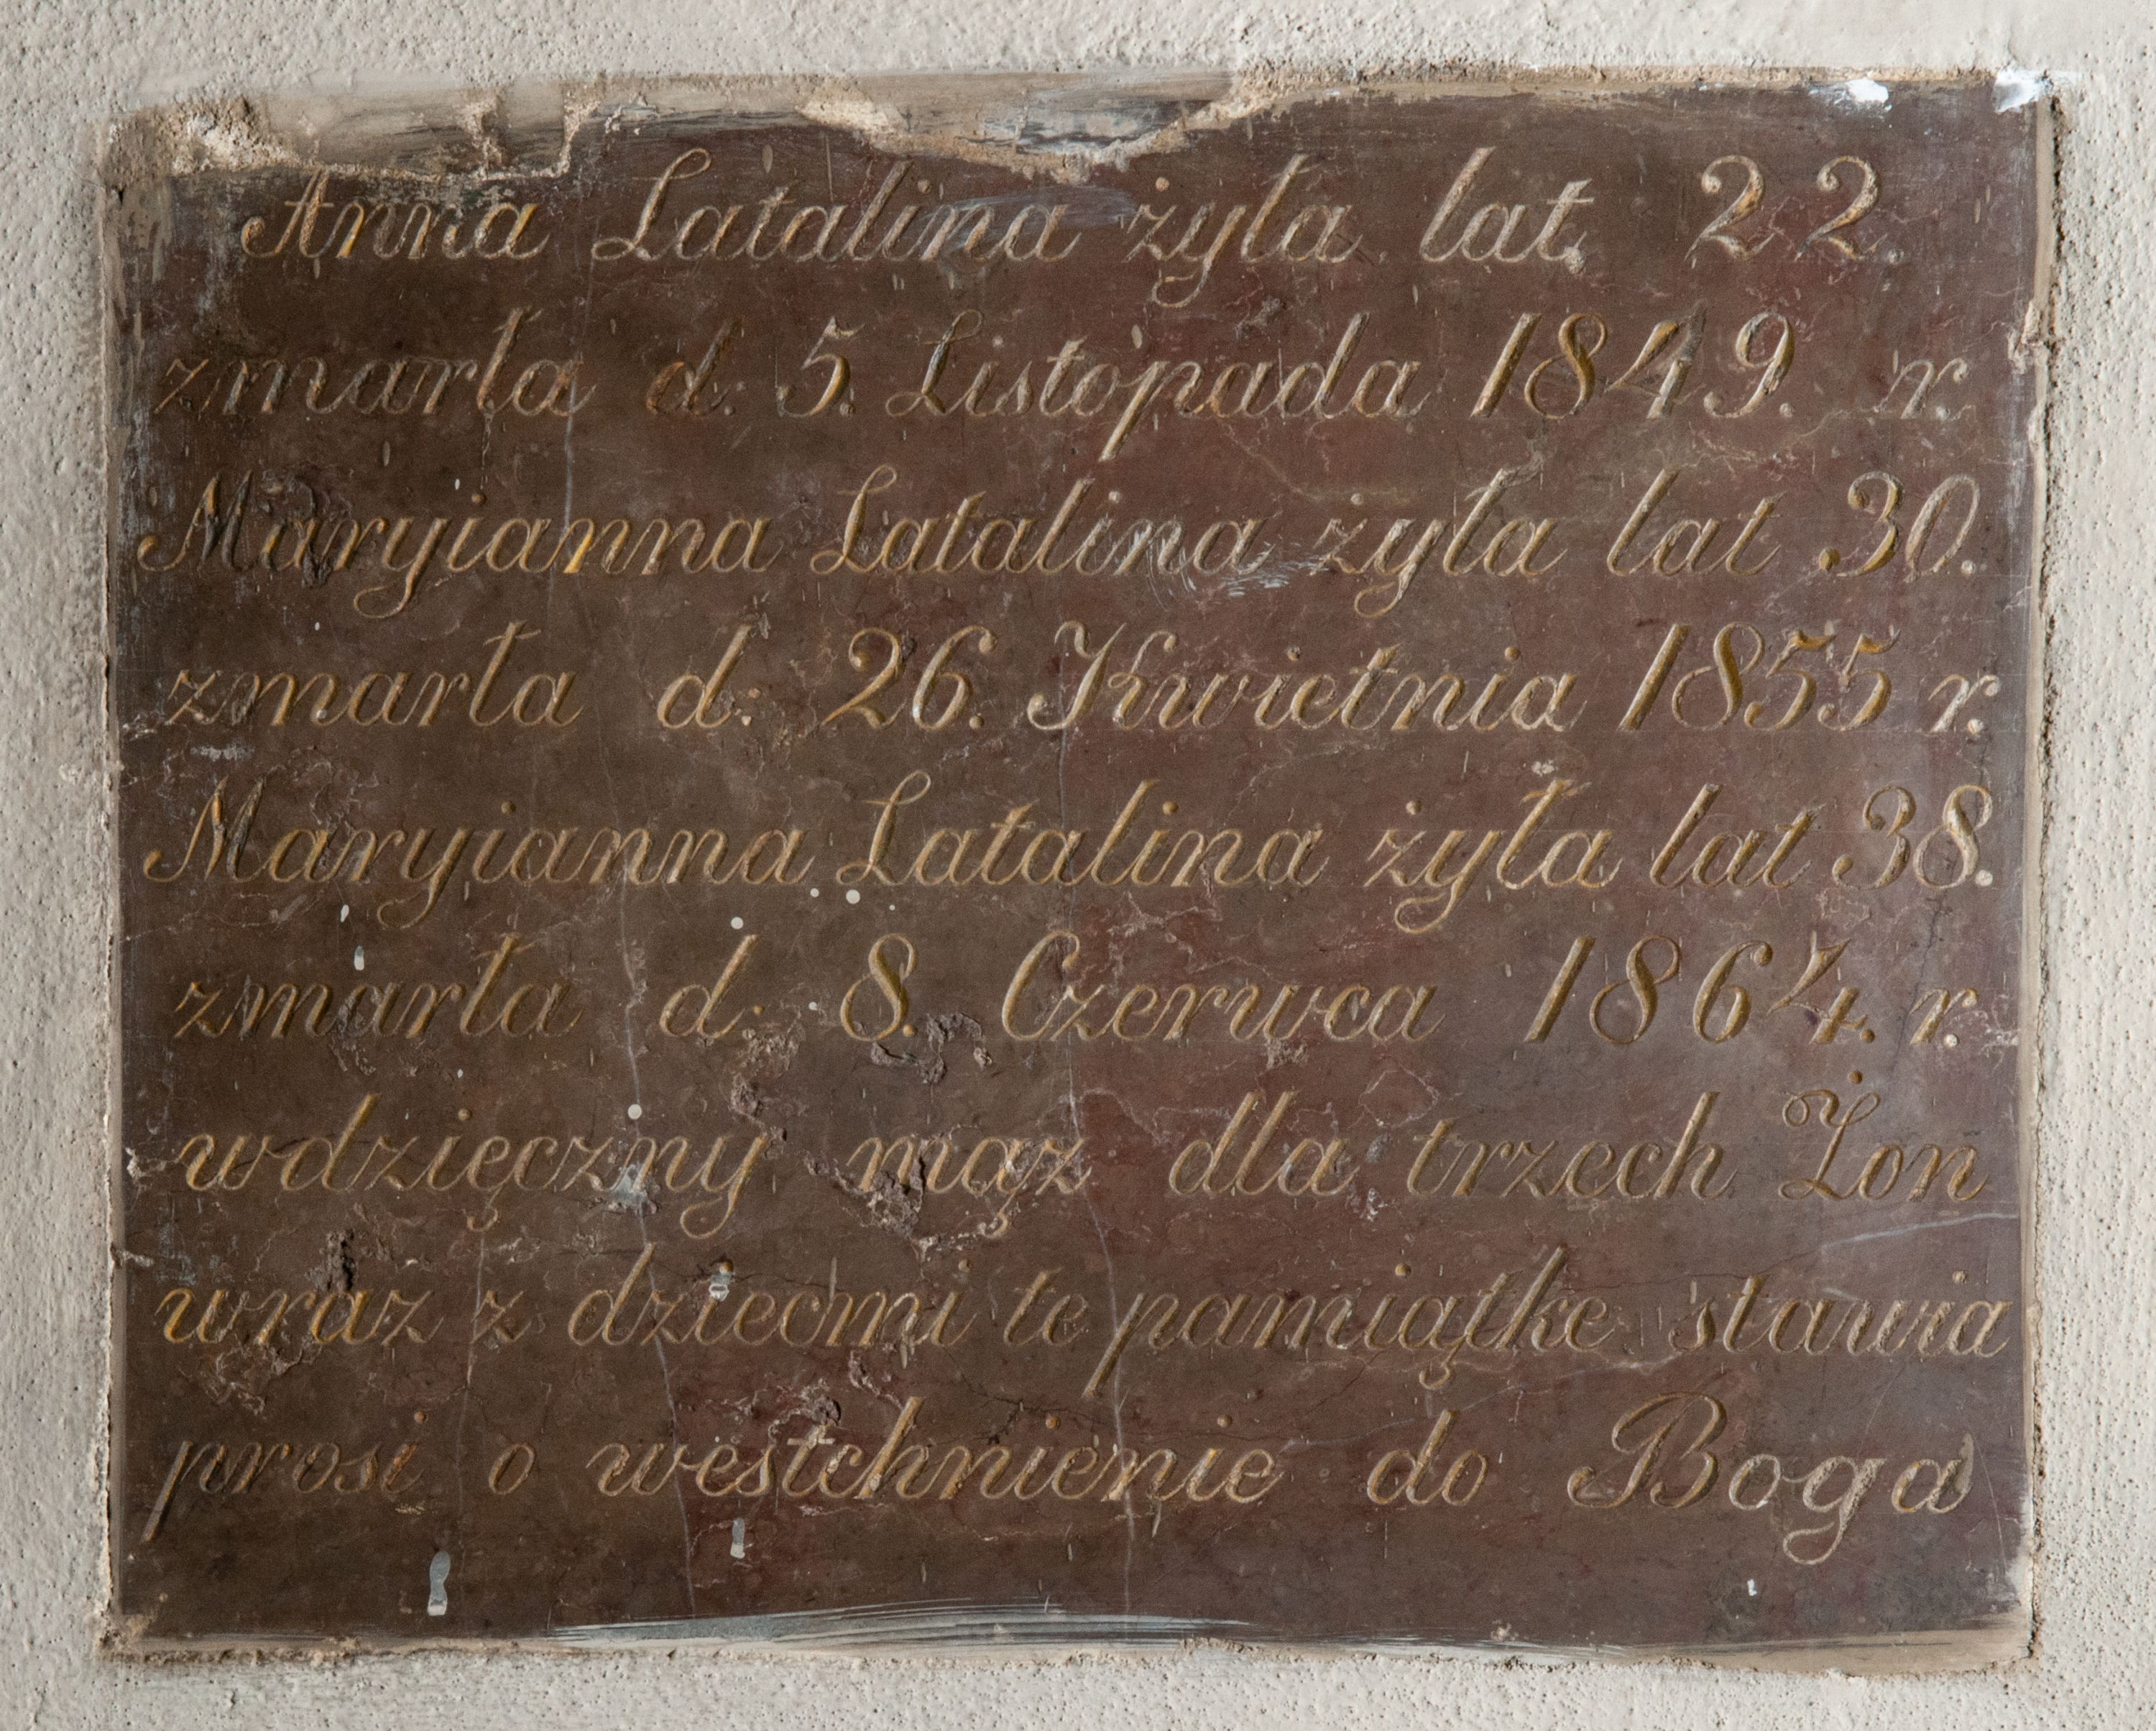 Anna Latalina żyła lat 22
zmarła d. 5. Listopada 1849. r.
Maryianna Latalina żyła lat 30.
zmarła d. 26. Kwietnia 1855 r.
Maryianna Latalina żyła lat 38.
zmarła d. 8. Czerwca 1864. r.
wdzięczny mąz dla trzech Żon
wraz z dziecmi te pamiątke stawia
prosi o westchnienie do Boga